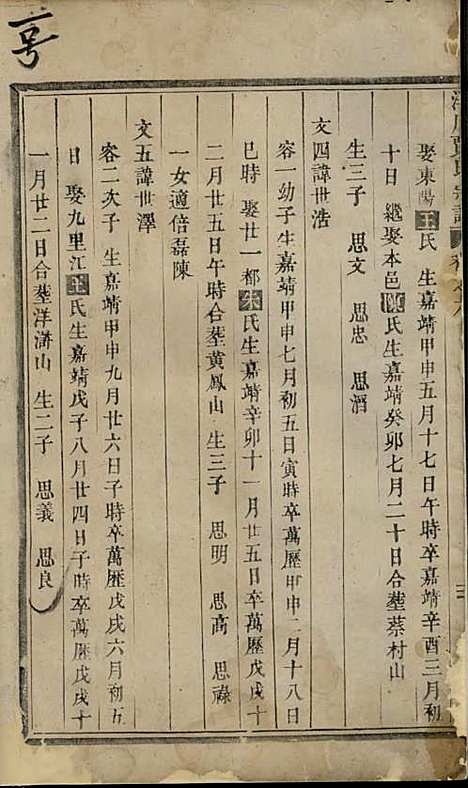 娶東陽王氏 生嘉靖甲申五月十七日午時卒嘉靖辛酉三月初
十日 繼娶本邑陳氏生嘉靖癸卯七月二十日合塟蔡村山
生三子 思文 思忠 思酒
文四諱世浩
容一幼子生嘉靖甲申七月初五日寅時卒萬歷甲申二月十八日
巳時 娶廿一都朱氏生嘉靖辛卯十一月廿五日卒萬歷戊戌十
二月廿五日午時合塟黃鳳山 生三子 思明 思高 思祿
一女適倍磊陳
文五諱世澤
容二次子 生嘉靖甲申九月廿六日子時卒萬歷戊戌六月初五
日 娶九里江王氏生嘉靖戊子八月廿四日子時卒萬歷戊戌十
一月廿二日合塟洋滸山 生二子 思義 思良